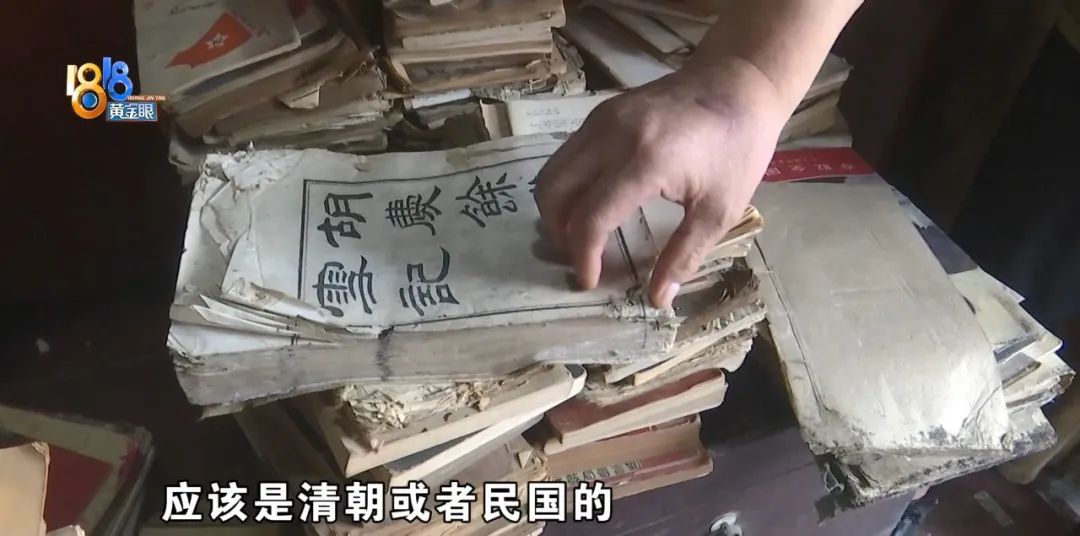 1818
HUANG JIN YAN
黄金眼
胡慶餘
雪記
全国
应该是清朝或者民国的